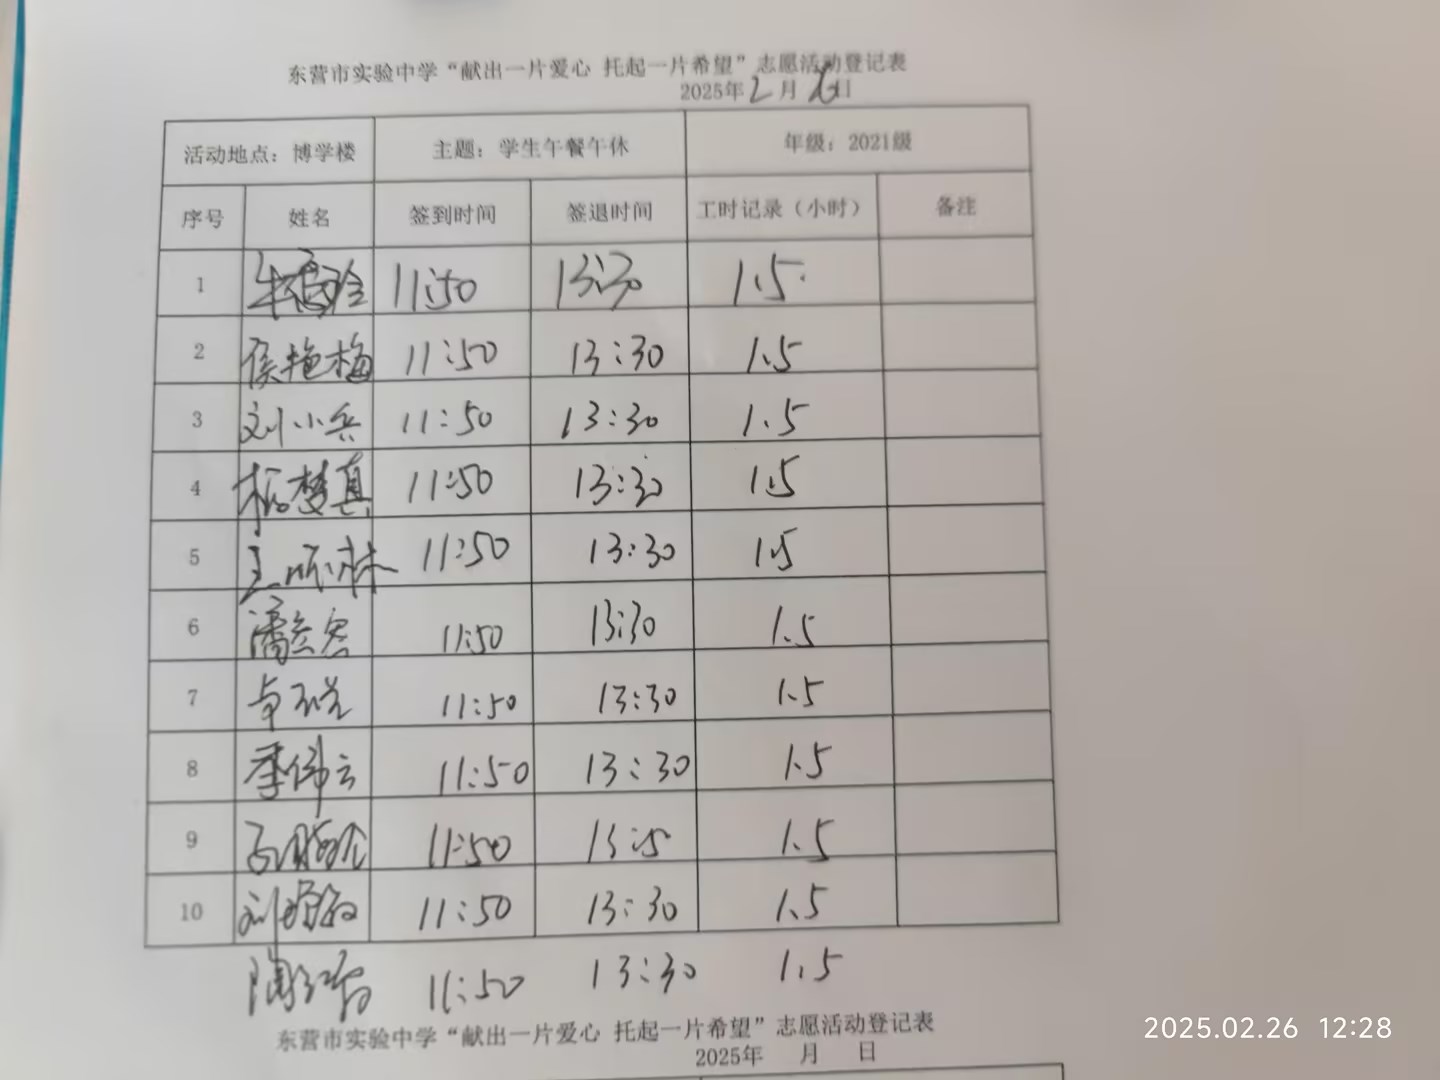 东营市实验中学“献出一片爱心 托起一片希望”志愿活动登记表
2025年2月26日
活动地点：博学楼 主题：学生午餐午休 年级：2021级
序号 姓名 签到时间 签退时间 工时记录（小时） 备注
1 11:50 13:30 1.5
2 侯艳梅 11:50 13:30 1.5
3 刘小兵 11:50 13:30 1.5
4 杨梦真 11:50 13:30 1.5
5 11:50 13:30 1.5
6 11:50 13:30 1.5
7 11:50 13:30 1.5
8 季伟云 11:50 13:30 1.5
9 11:50 1.5
10 11:50 13:30 1.5
11:50 13:30 1.5
东营市实验中学“献出一片爱心 托起一片希望”志愿活动登记表
2025年 月 日
2025.02.26 12:28